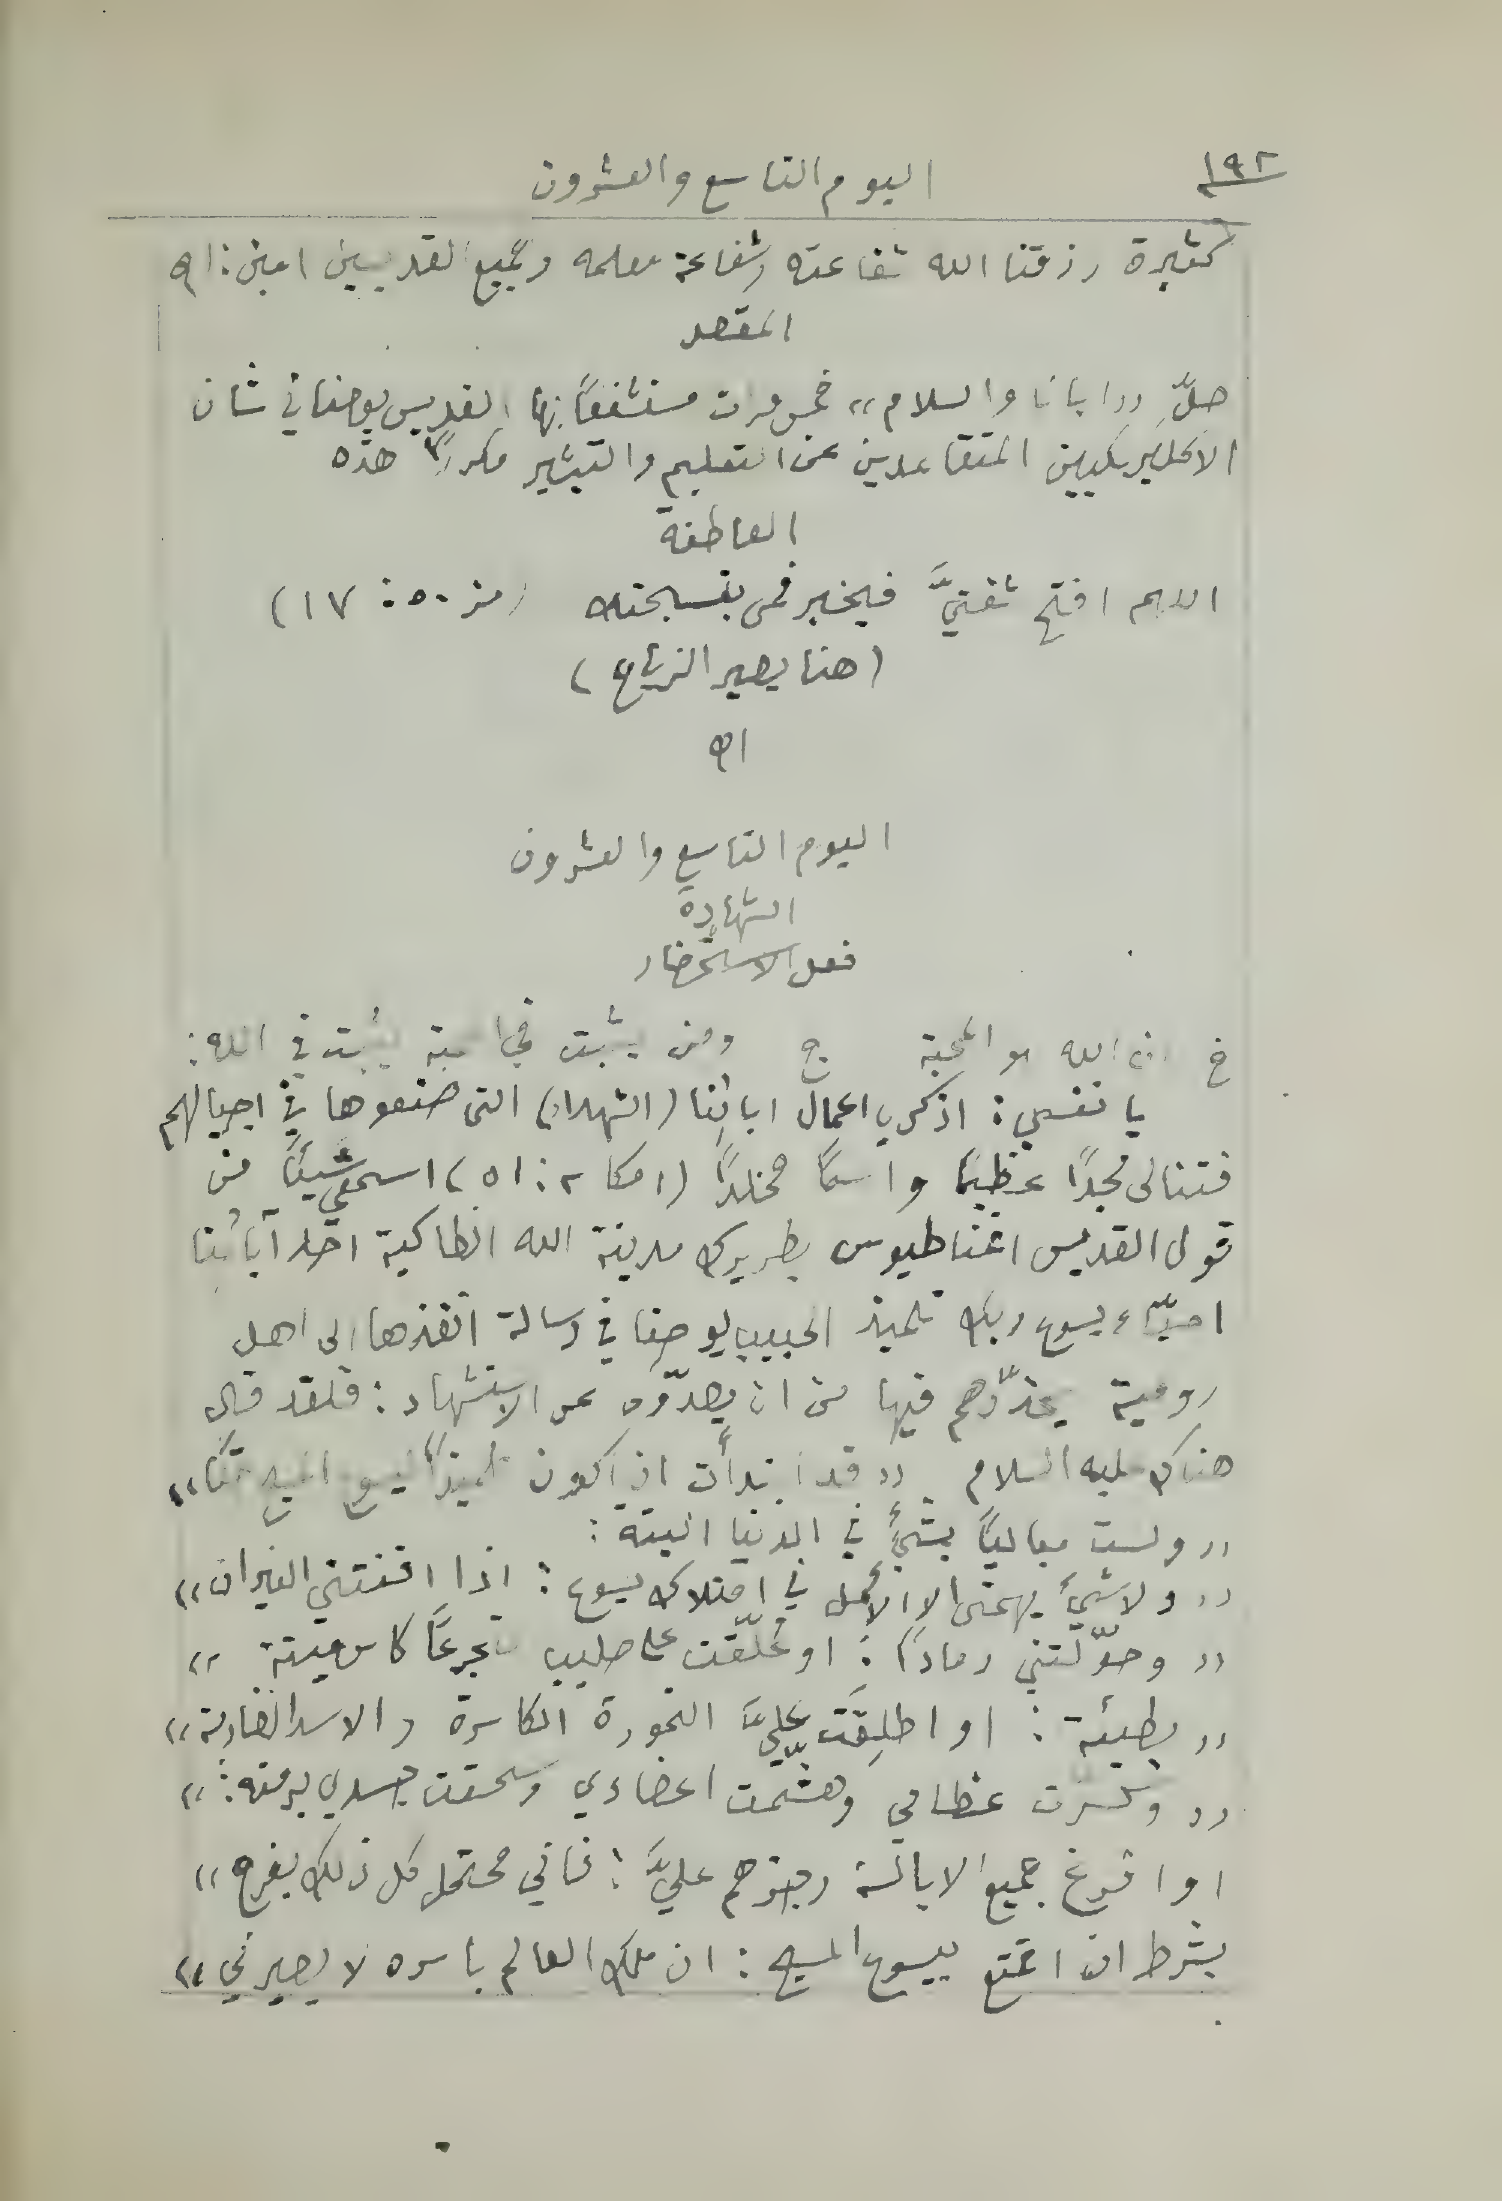 ١٩٢
اليوم التاسع والعشرون
كثيرة رزقنا الله شفاعته وشفاعة معلمه وجميع القديسين امين: اھ
المقصد
صلِّ «ابانا والسلام» خمس مرات مستشفعًا بها القديس يوحنا في شان
الاكليريكيين المتقاعدين عن التعليم والتبشير مكررًا هذه
العاطفة
اللهم افتح شفتيَّ فيخبر فمي بتسبحتك (مز ٥٠: ١٧)
(هنا يصير الزياح)
اھ
اليوم التاسع والعشرون
الشهادة
فعل الاستحضار
خ ان الله هو المحبة ج ومن يثبت في المحبة يثبت في الله:
يا نفسي: اذكري اعمال ابائنا (الشهداء) التي صنعوها في اجيالهم
فتنالى مجدًا عظيمًا واسمًا مخلدًا (١مكا ٢: ٥١) اسمعي شيئًا من
قول القديس اغناطيوس بطريرك مدينة الله انطاكية احد آبائنا
احبّاء يسوع ربك تلميذ الحبيب يوحنا في رسالة انفذها الى اهل
رومية يحذّرهم فيها من ان يصدّوه عن الاستشهاد: فلقد قال
هناك عليه السلام «قد ابتدأت ان اكون تلميذًا ليسوع المسيح حقًا»
«ولست مباليًا بشئٍ في الدنيا البتة:
«ولا شئ يهمني الا الامل في امتلاك يسوع: اذا افنتني النيران»
«وحوّلتني رمادًا: او عُلّقت على صليب متجرعًا كاس ميتة»
«بطيئة: او اطلِقَت عليَّ النمورة الكاسرة والاسد الضارية»
«وكسرت عظامي وهشّمت اعضاءي وسحقت جسدي برمته:»
او افرغ جميع الابالسة رجزهم عليَّ: فاني محتمل كل ذلك بفرح»
بشرط ان اتمتع بيسوع المسيح: ان ملك العالم باسره لا يصيرني»